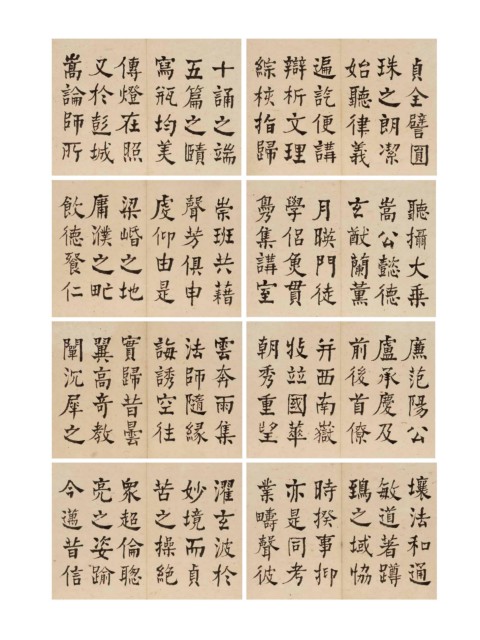 貞全譬圓
珠之朗潔
始聽律義
遍訖便講
辯析文理
綜核指歸
十誦之端
五篇之賾
寫瓶均美
傳燈在照
又於彭城
嵩論師所
聽攝大乘
嵩公懿德
玄猷蘭薰
月暎門徒
學侶魚貫
鳧集講室
崇班共藉
聲芳俱申
虔仰由是
梁㟭之地
庸濮之甿
飲德餐仁
廉范陽公
盧承慶及
前後首僚
并西南嶽
牧竝國華
朝秀重望
雲奔雨集
法師隨緣
誨誘空往
實歸昔曇
翼高奇教
闡沉犀之
壤法和通
敏道著蹲
鵄之域恊
時揆事抑
亦是同考
業疇聲彼
濯玄波於
妙境而貞
苦之操絕
衆超倫聰
亮之姿踰
今邁昔信